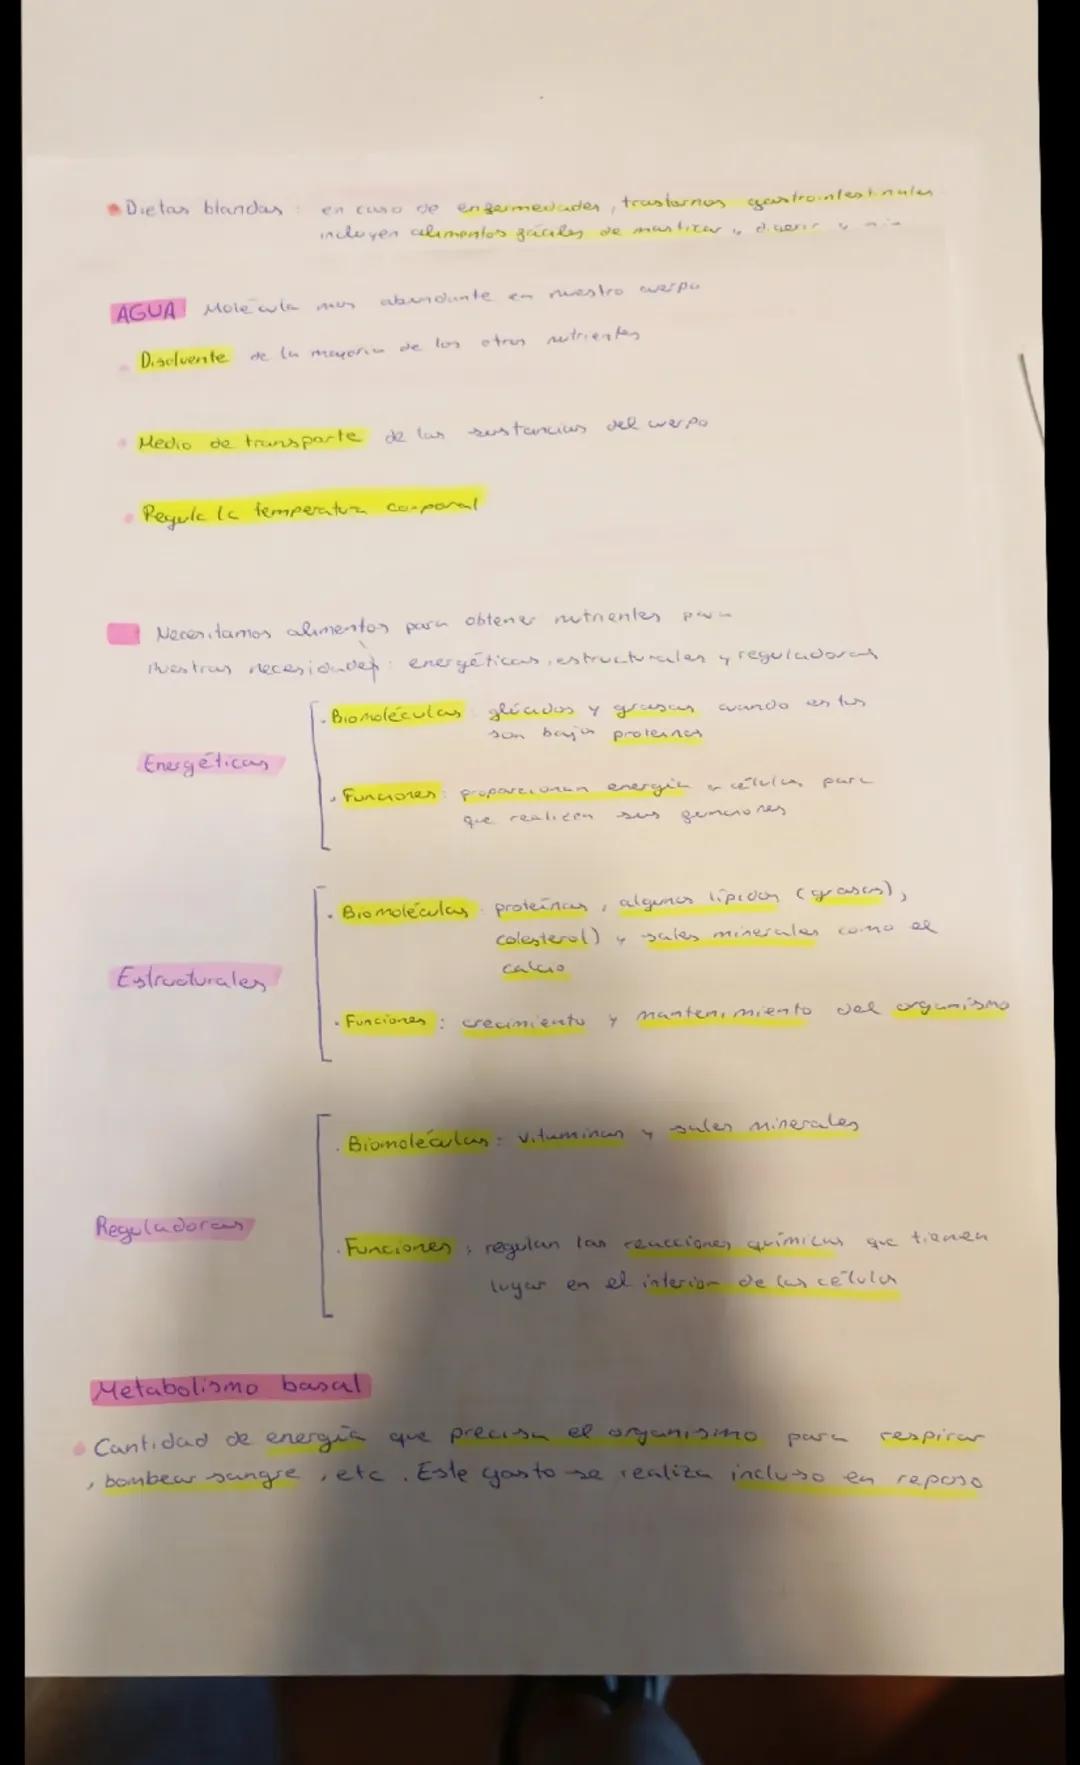 Dietas blandas : en caso de enfermedades, trastornos gastrointestinales
incluyen alimentos fáciles de masticar y digerir y
AGUA Molécula mas abundante en nuestro cuerpo
Disolvente de la mayoria de los otros nutrientes
Medio de transporte de las sustancias del cuerpo
Regula la temperatura corporal
Necesitamos alimentos para obtener nutrientes para
nuestras necesidades : energéticas, estructurales y reguladoras
Energéticas
. Biomoléculas : glúcidos y grasas cuando estas
son bajas proteinas
. Funciones : proporcionan energía a células para
que realicen sus funciones
Estructurales
. Biomoléculas : proteínas, algunos lípidos (grasas),
colesterol) y sales minerales como el
calcio
. Funciones : crecimiento y mantenimiento del organismo
Reguladoras
. Biomoléculas : vitaminas y sales minerales
. Funciones : regulan las reacciones químicas que tienen
lugar en el interior de las células
Metabolismo basal
Cantidad de energía que precisa el organismo para respirar
, bombear sangre, etc. Este gasto se realiza incluso en reposo